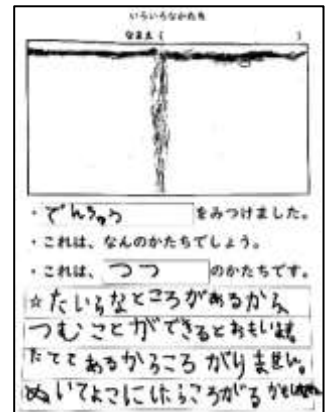 いろいろなかたち
なまえ（　　　　）
・でんちゅう をみつけました。
・これは、なんのかたちでしょう。
・これは、つつ のかたちです。
☆たいらなところがあるから
つむことができるとおもいます。
たててあるからころがりません。
ぬいてよこにしたらころがるかも